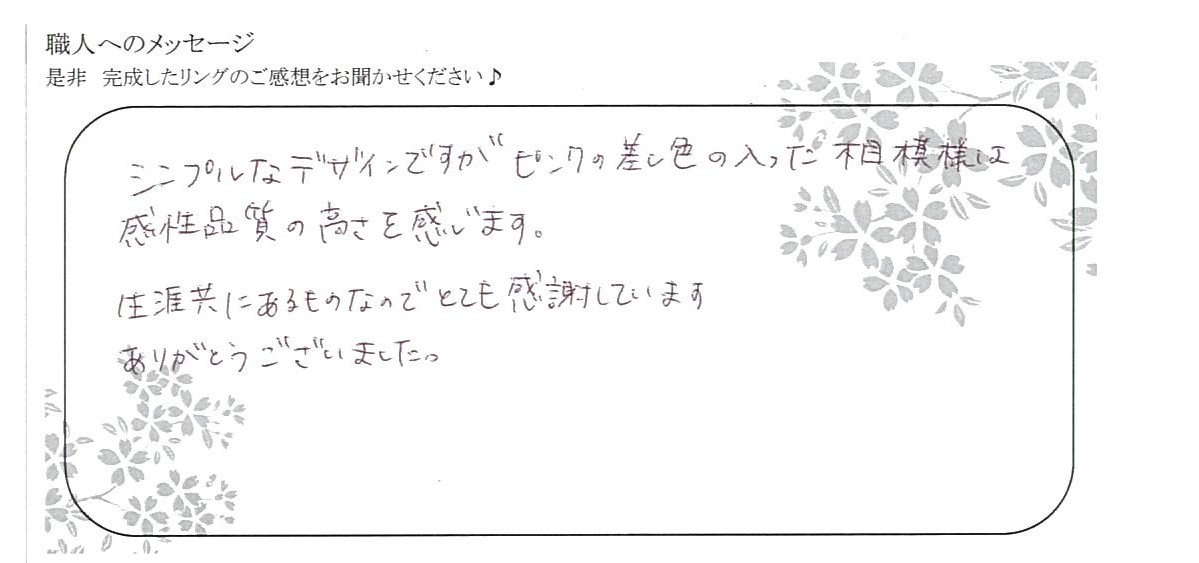 職人へのメッセージ
是非 完成したリングのご感想をお聞かせください♪
シンプルなデザインですがピンクの差し色の入った相模様は
感性品質の高さを感じます。
生涯共にあるものなのでとても感謝しています
ありがとうございました。